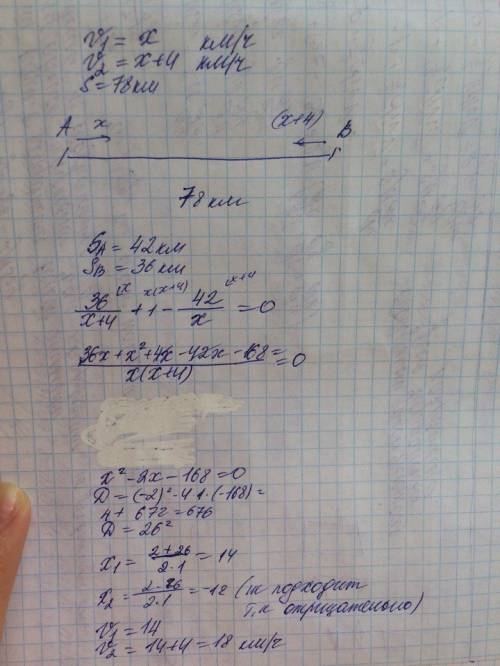 V₁ = x км/ч
V₂ = x+4 км/ч
S = 78 км
A x (x+4) B
78 км
S_A = 42 км
S_B = 36 км
36/(x+4) (x + 1 x(x+4) - 42/x (x+4 = 0
(36x + x² + 4x - 42x - 168 =)/(x(x+4)) = 0
x² - 2x - 168 = 0
D = (-2)² - 4·1·(-168) =
4 + 672 = 676
D = 26²
x₁ = (2+26)/(2·1) = 14
x₂ = (2-26)/(2·1) = -12 (не подходит
т,к отрицательного)
V₁ = 14
V₂ = 14+4 = 18 км/ч